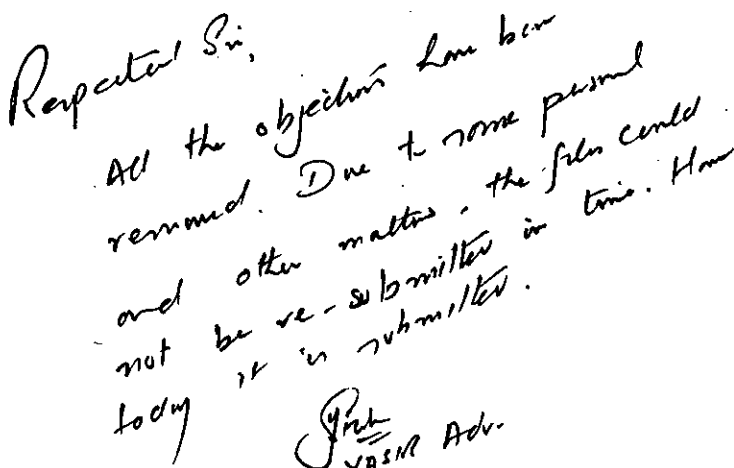 Respected Sir,
All the objections have been
removed. Due to some personal
and other matters, the files could
not be re-submitted in time. Hence
today it is submitted.
YASIR Adv.